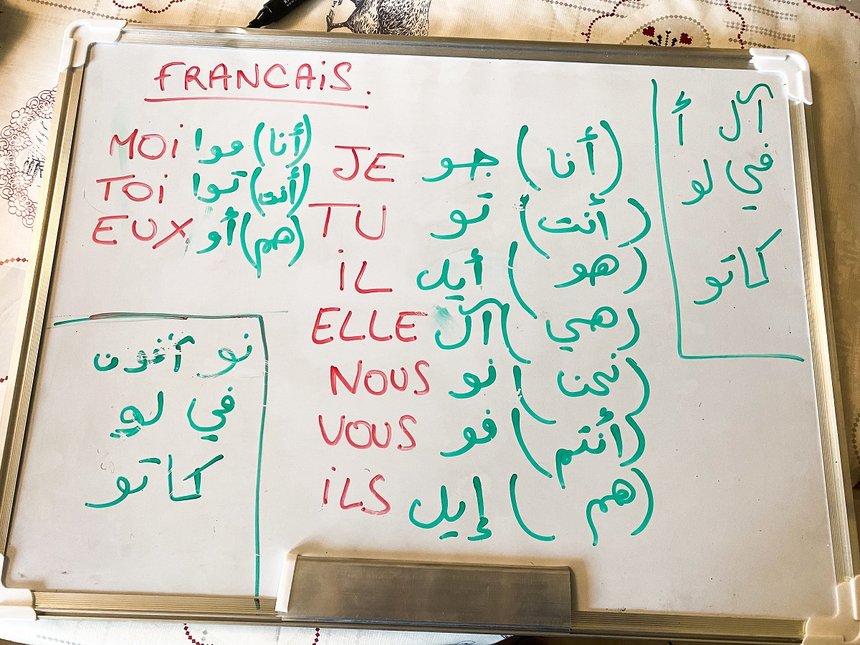 FRANCAIS.
MOI موا (أنا)
TOI توا (أنت)
EUX أو (هم)
JE جو (أنا)
TU تو (أنت)
iL أيل (هو)
ELLE آل (هي)
NOUS نو (نحن)
VOUS فو (أنتم)
iLS إيل (هم)
آل أ
في لو
كاتو
نو آفون
في لو
كاتو